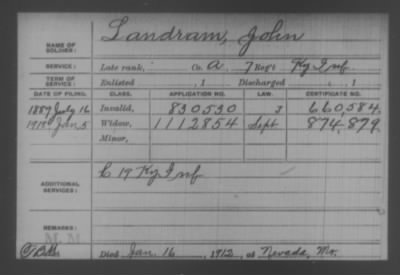 Landram, John
NAME OF SOLDIER:
SERVICE: Late rank, Co. A, 7 Reg't Ky Inf
TERM OF SERVICE: Enlisted , 1 Discharged , 1
DATE OF FILING. CLASS. APPLICATION NO. LAW. CERTIFICATE NO.
1889 July 16 Invalid, 830530 J 660,584
Jan. 5 Widow, 1112854 Sept 874,879
Minor,
ADDITIONAL SERVICES: C 19 Ky Inf
REMARKS:
Died Jan. 16, 1912, at Nevada, Mo.